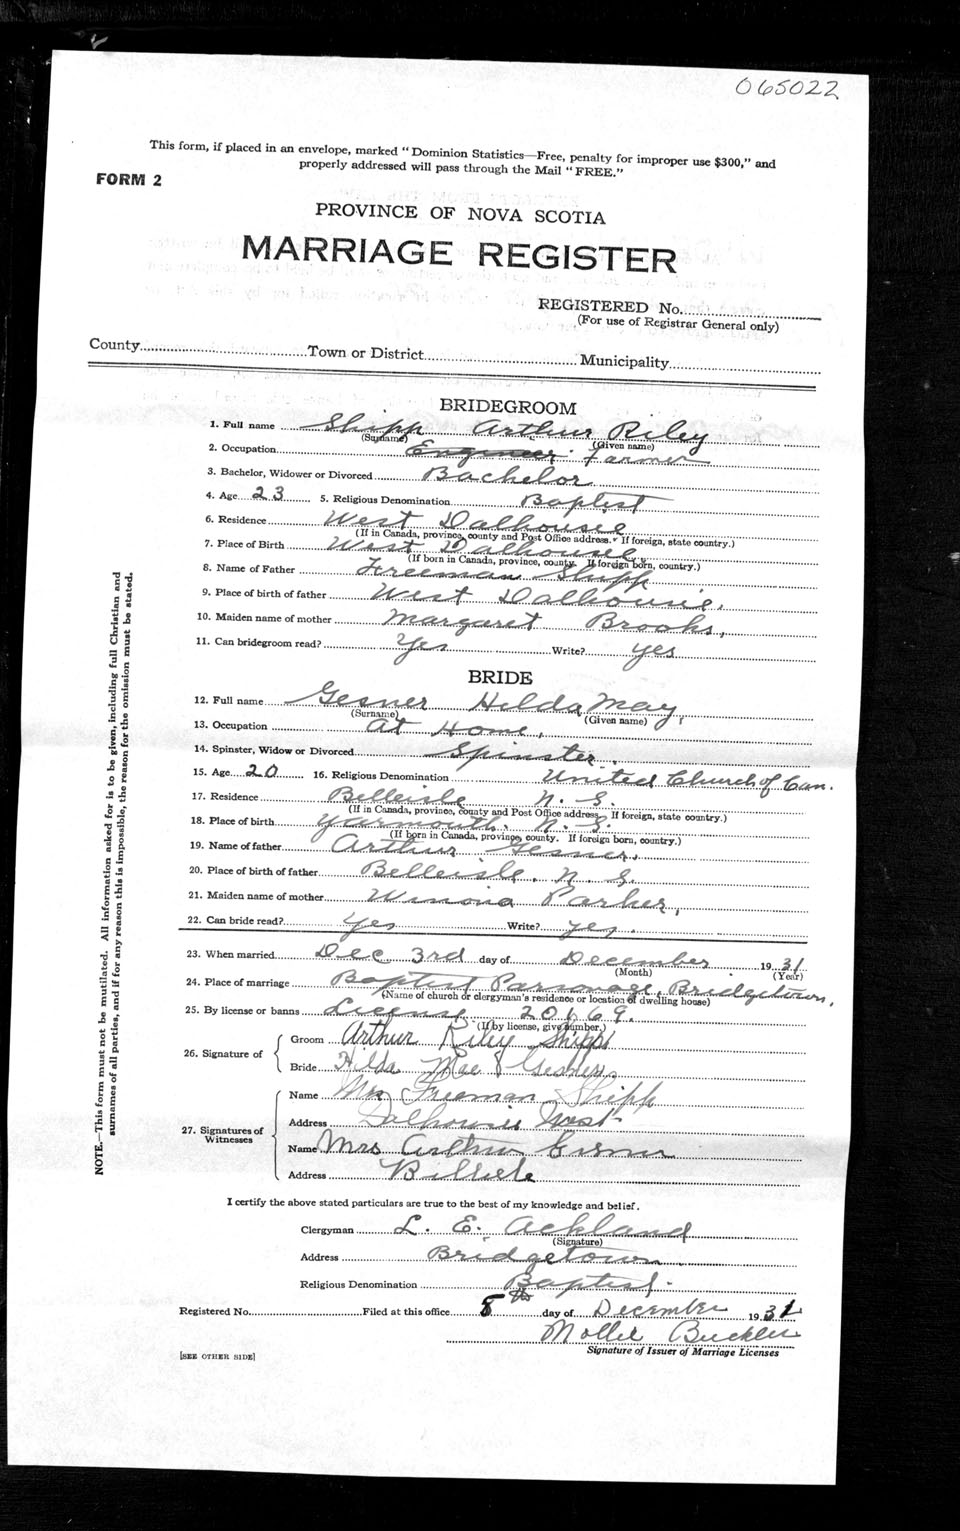 065022
This form, if placed in an envelope, marked "Dominion Statistics—Free, penalty for improper use $300," and
properly addressed will pass through the Mail "FREE."
FORM 2
PROVINCE OF NOVA SCOTIA
MARRIAGE REGISTER
REGISTERED No.
(For use of Registrar General only)
County Town or District Municipality
BRIDEGROOM
1. Full name Shipp Arthur Riley
(Surname) (Given name)
2. Occupation Engineer Farmer
3. Bachelor, Widower or Divorced Bachelor
4. Age 23 5. Religious Denomination Baptist
6. Residence West Dalhousie
(If in Canada, province, county and Post Office address. If foreign, state country.)
7. Place of Birth West Dalhousie
(If born in Canada, province, county. If foreign born, country.)
8. Name of Father Freeman Shipp
9. Place of birth of father West Dalhousie,
10. Maiden name of mother Margaret Brooks,
11. Can bridegroom read? Yes Write? yes
BRIDE
12. Full name Gesner Hilda May,
(Surname) (Given name)
13. Occupation at Home,
14. Spinster, Widow or Divorced Spinster.
15. Age 20 16. Religious Denomination United Church of Can.
17. Residence Belleisle N. S.
(If in Canada, province, county and Post Office address. If foreign, state country.)
18. Place of birth Yarmouth, N. S.
(If born in Canada, province, county. If foreign born, country.)
19. Name of father Arthur Gesner.
20. Place of birth of father Belleisle, N. S.
21. Maiden name of mother Winona Parker,
22. Can bride read? yes Write? yes.
23. When married Dec 3rd day of December 1931
(Month) (Year)
24. Place of marriage Baptist Parsonage, Bridgetown,
(Name of church or clergyman's residence or location of dwelling house)
25. By license or banns License 20169.
(If by license, give number.)
26. Signature of
Groom Arthur Riley Shipp
Bride Hilda Mae Gesner
27. Signatures of Witnesses
Name Mrs Freeman Shipp
Address Dalhousie West
Name Mrs Arthur Gesner
Address Bellisle
I certify the above stated particulars are true to the best of my knowledge and belief.
Clergyman L. E. Ackland
(Signature)
Address Bridgetown
Religious Denomination Baptist.
Registered No. Filed at this office 8th day of December 1931
Buckler
Signature of Issuer of Marriage Licenses
[SEE OTHER SIDE]
NOTE.—This form must not be mutilated. All information asked for is to be given, including full Christian and
surnames of all parties, and if for any reason this is impossible, the reason for the omission must be stated.